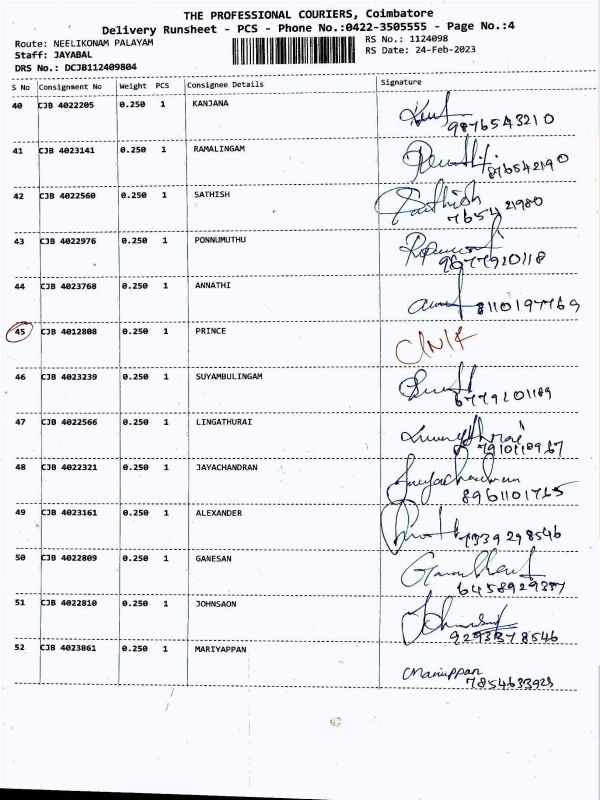 THE PROFESSIONAL COURIERS, Coimbatore
Delivery Runsheet - PCS - Phone No.:0422-3505555 - Page No.:4
Route: NEELIKONAM PALAYAM RS No.: 1124098
Staff: JAYABAL RS Date: 24-Feb-2023
DRS No.: DCJB112409804
S No Consignment No Weight PCS Consignee Details Signature
40 CJB 4022205 0.250 1 KANJANA
9876543210
41 CJB 4023141 0.250 1 RAMALINGAM
876542190
42 CJB 4022560 0.250 1 SATHISH Sathish
7654 21980
43 CJB 4022976 0.250 1 PONNUMUTHU
9677920118
44 CJB 4023768 0.250 1 ANNATHI
8110197769
45 CJB 4012808 0.250 1 PRINCE
46 CJB 4023239 0.250 1 SUYAMBULINGAM
6779201189
47 CJB 4022566 0.250 1 LINGATHURAI
7910110967
48 CJB 4022321 0.250 1 JAYACHANDRAN Jayachandran
8961101765
49 CJB 4023161 0.250 1 ALEXANDER
7339298546
50 CJB 4022809 0.250 1 GANESAN
51 CJB 4022810 0.250 1 JOHNSAON
52 CJB 4023861 0.250 1 MARIYAPPAN
7854633923